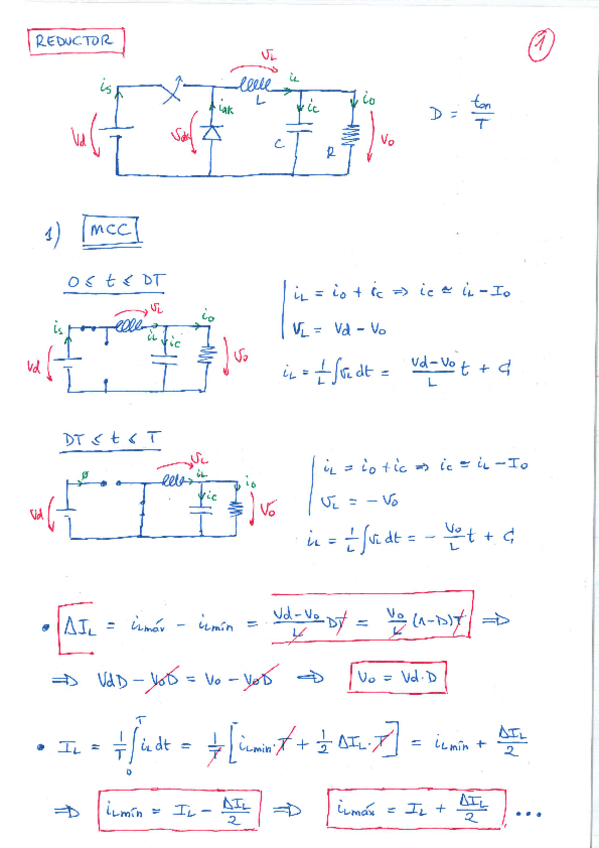 REDUCTOR
1
is
vL
L
iL
iC
io
iAK
Vd
vAK
C
R
vo
D = ton/T
1) MCC
0 ≤ t ≤ DT
vL
is
iL
iC
io
Vd
vo
iL = io + ic ⇒ ic ≃ iL - Io
vL = Vd - Vo
iL = 1/L ∫vL dt = (Vd-Vo)/L t + C1
DT ≤ t ≤ T
vL
ø
iL
iC
io
Vd
vo
iL = io + ic ⇒ ic ≃ iL - Io
vL = -Vo
iL = 1/L ∫vL dt = - Vo/L t + C1
• ΔIL = iLmáx - iLmín = (Vd-Vo)/L DT = Vo/L (1-D)T ⇒
⇒ VdD - VoD = Vo - VoD ⇒ Vo = Vd·D
• IL = 1/T ∫₀ᵀ iL dt = 1/T [iLmin·T + 1/2 ΔIL·T] = iLmín + ΔIL/2
⇒ iLmín = IL - ΔIL/2 ⇒ iLmáx = IL + ΔIL/2 ...